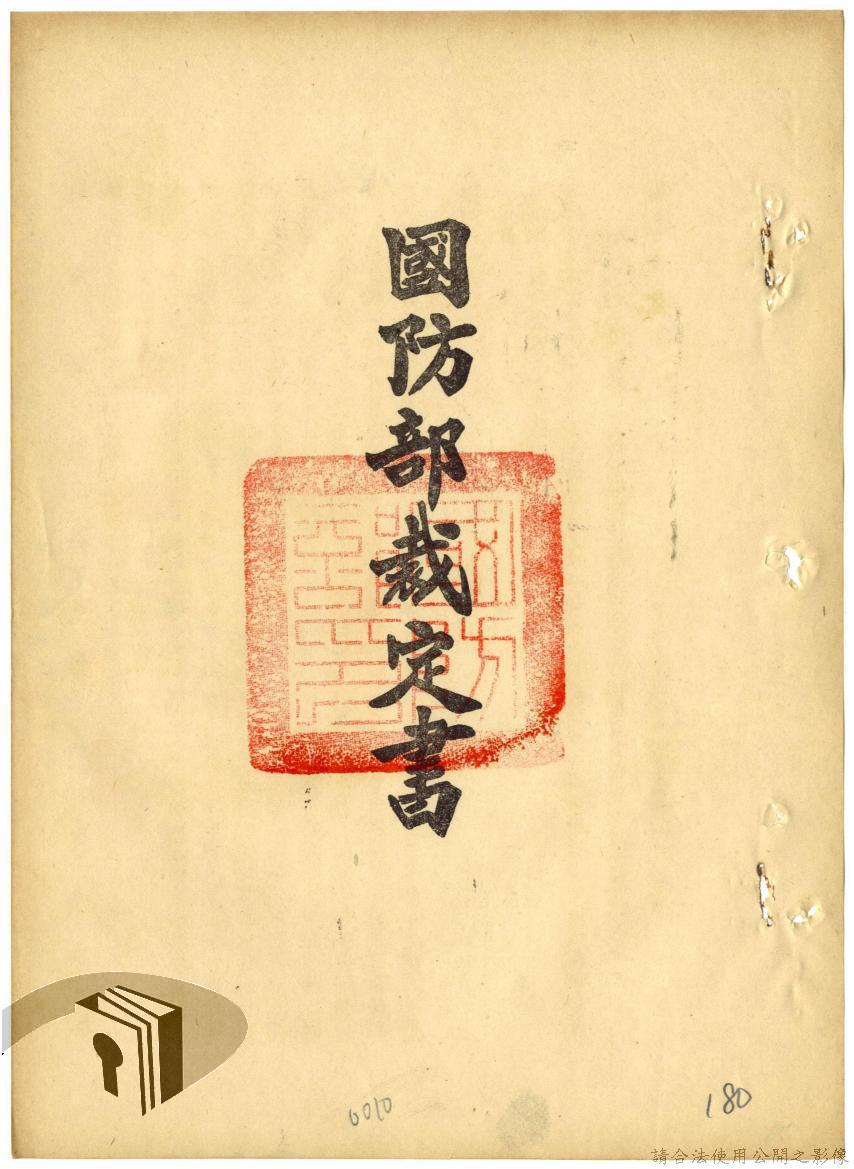 國防部裁定書
0010
180
請合法使用公開之影像